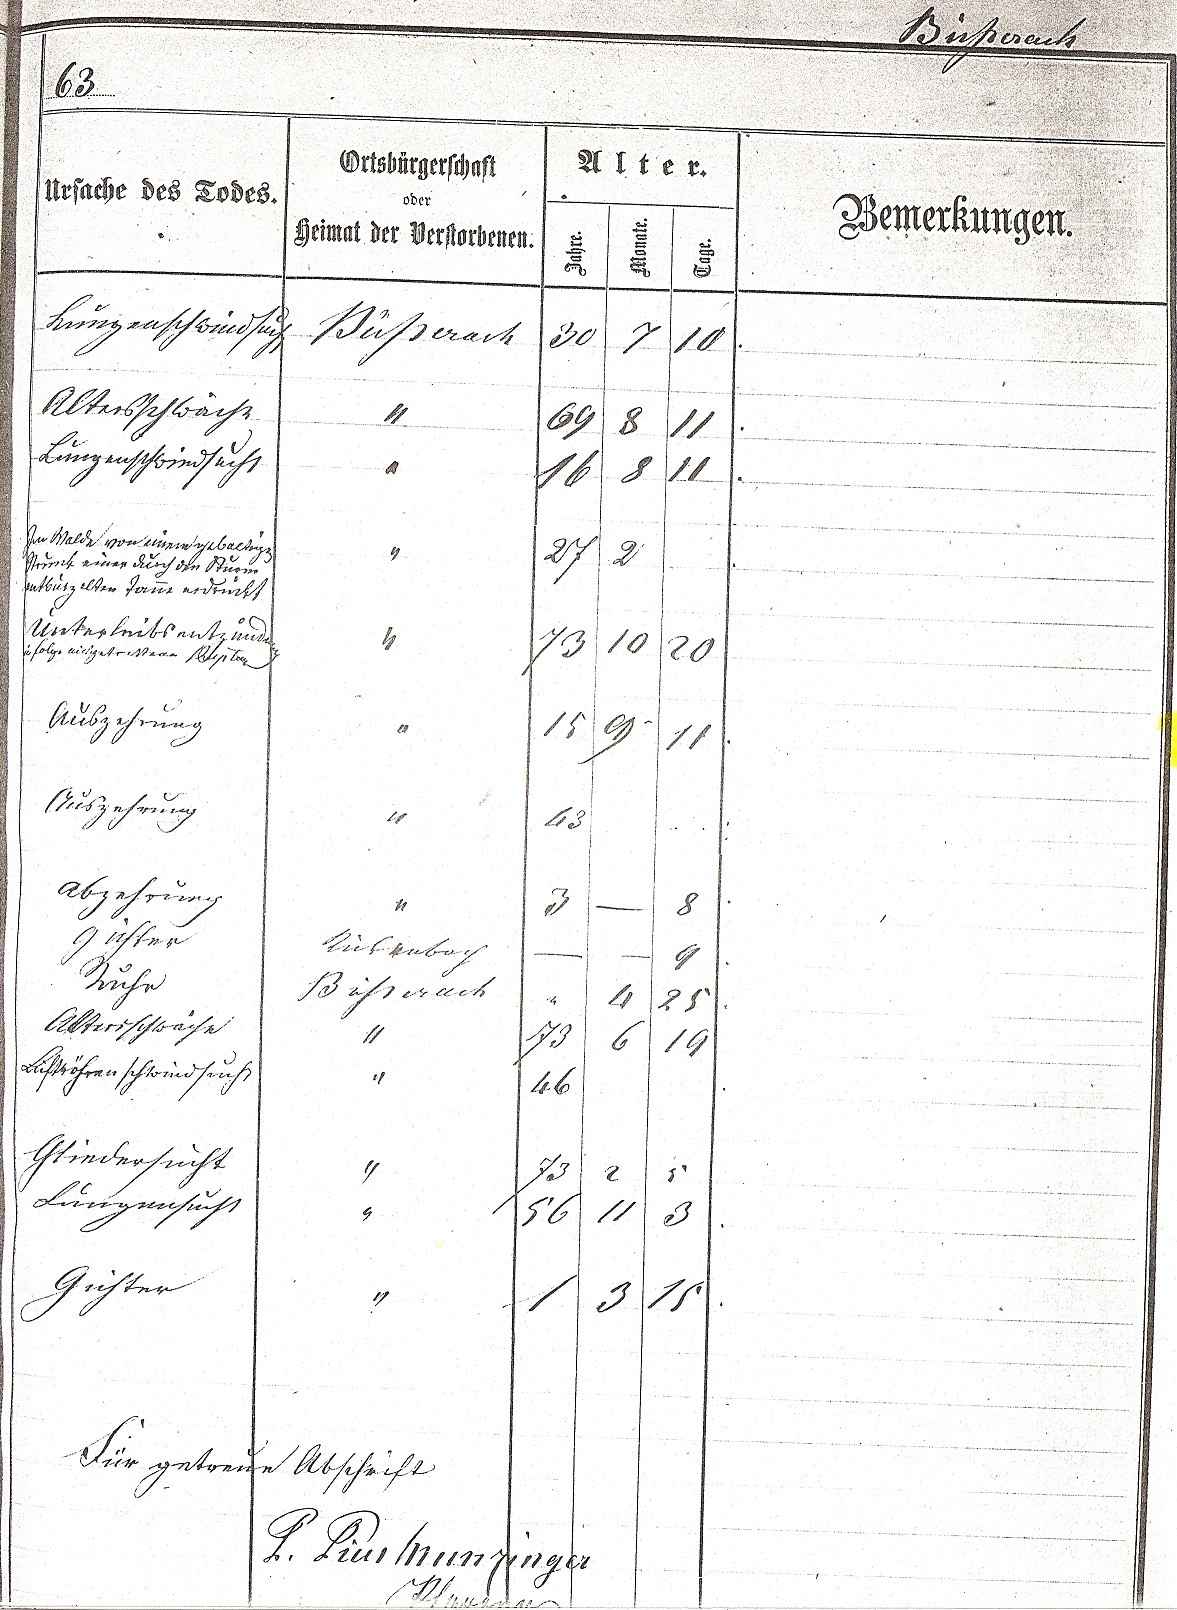 Büßerach
63
Ursache des Todes.
Ortsbürgerschaft
oder
Heimat der Verstorbenen.
Alter.
Jahre.
Monate.
Tage.
Bemerkungen.
Lungenschwindsucht Büßerach 30 7 10
Altersschwäche " 69 8 11
Lungenschwindsucht " 16 8 11
Im Walde von einem gewaltigen
Strunk einer durch den Sturm " 27 2
entwurzelten Tanne erdrückt
Unterleibsentzündung " 73 10 20
infolge
Auszehrung " 15 9 11
Auszehrung " 43
Abzehrung " 3 — 8
Gichter — — 9
Ruhr Büßerach " 4 25
Altersschwäche " 73 6 19
Luftröhrenschwindsucht " 46
Gliedersucht " 73 2 5
Lungensucht " 56 11 3
Gichter " 1 3 15
Für getreue Abschrift
P. Pius Munzinger